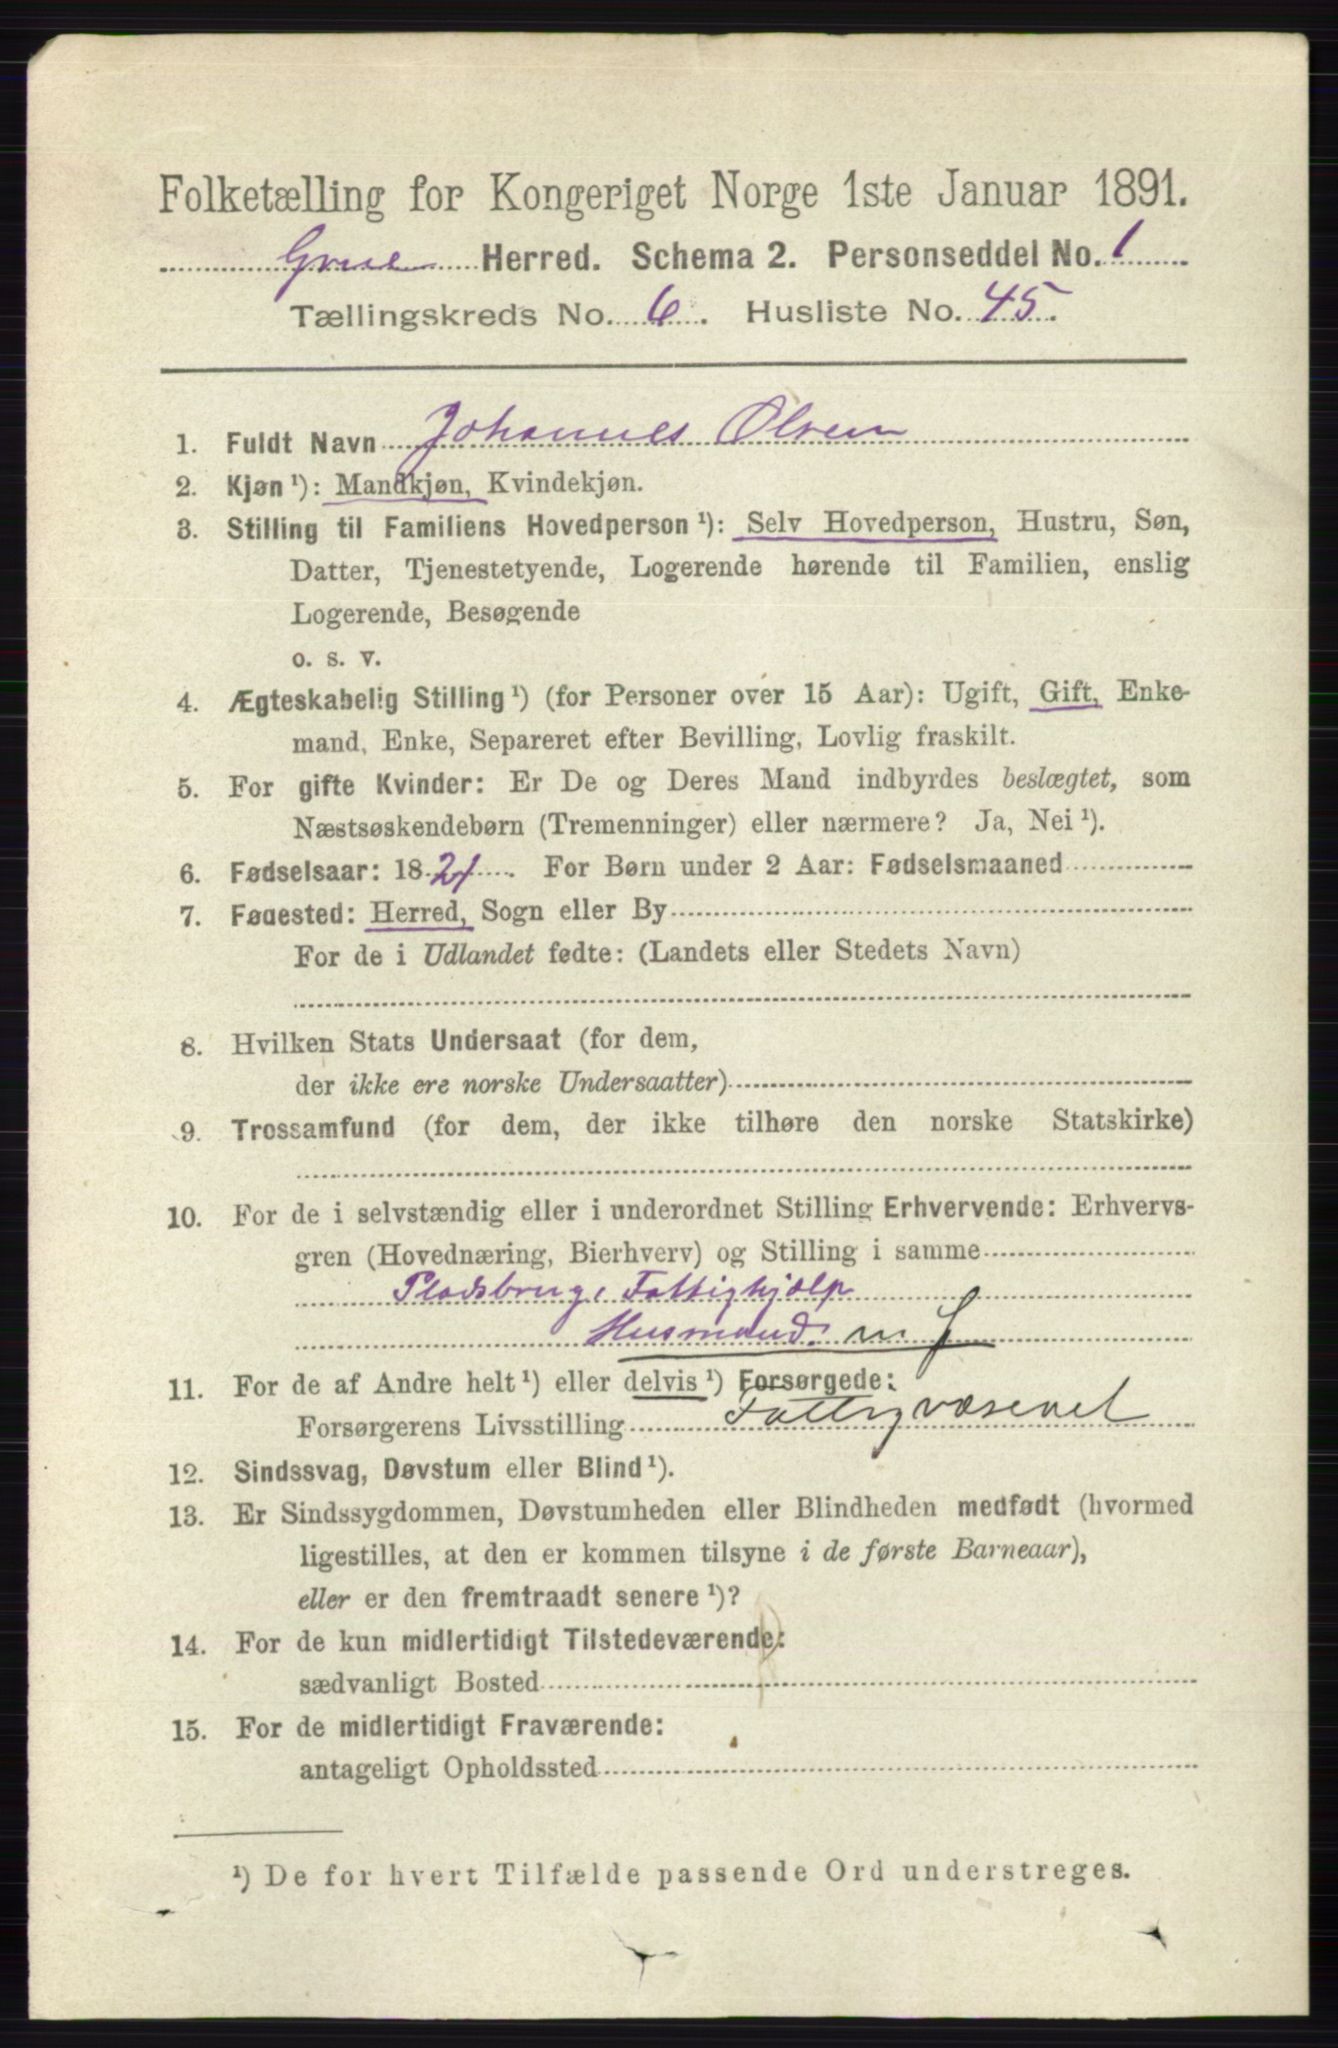 Folketælling for Kongeriget Norge 1ste Januar 1891.
Grue Herred. Schema 2. Personseddel No. 1
Tællingskreds No. 6. Husliste No. 45.
1. Fuldt Navn Johannes Olsen
2. Kjøn ¹): Mandkjøn, Kvindekjøn.
3. Stilling til Familiens Hovedperson ¹): Selv Hovedperson, Hustru, Søn,
Datter, Tjenestetyende, Logerende hørende til Familien, enslig
Logerende, Besøgende
o. s. v.
4. Ægteskabelig Stilling ¹) (for Personer over 15 Aar): Ugift, Gift, Enke-
mand, Enke, Separeret efter Bevilling, Lovlig fraskilt.
5. For gifte Kvinder: Er De og Deres Mand indbyrdes beslægtet, som
Næstsøskendebørn (Tremenninger) eller nærmere? Ja, Nei ¹).
6. Fødselsaar: 1821. For Børn under 2 Aar: Fødselsmaaned
7. Fødested: Herred, Sogn eller By
For de i Udlandet fødte: (Landets eller Stedets Navn)
8. Hvilken Stats Undersaat (for dem,
der ikke ere norske Undersaatter)
9. Trossamfund (for dem, der ikke tilhøre den norske Statskirke)
10. For de i selvstændig eller i underordnet Stilling Erhvervende: Erhvervs-
gren (Hovednæring, Bierhverv) og Stilling i samme
Pladsbrug, Fattighjælp
Husmand m J
11. For de af Andre helt ¹) eller delvis ¹) Forsørgede:
Forsørgerens Livsstilling Fattigvæsenet
12. Sindssvag, Døvstum eller Blind ¹).
13. Er Sindssygdommen, Døvstumheden eller Blindheden medfødt (hvormed
ligestilles, at den er kommen tilsyne i de første Barneaar),
eller er den fremtraadt senere ¹)?
14. For de kun midlertidigt Tilstedeværende:
sædvanligt Bosted
15. For de midlertidigt Fraværende:
antageligt Opholdssted
¹) De for hvert Tilfælde passende Ord understreges.